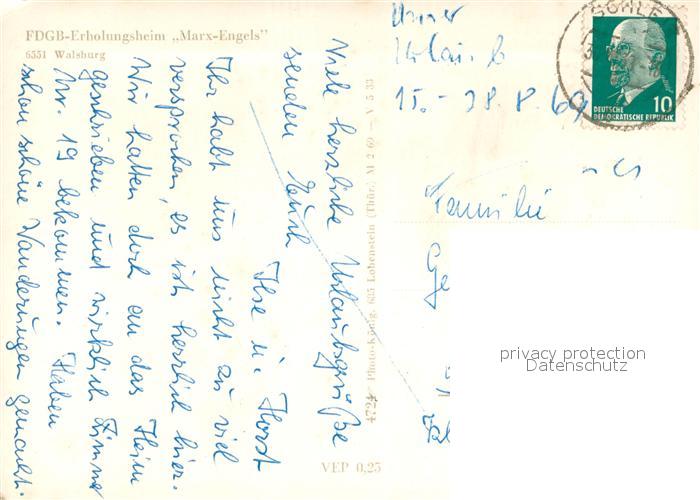 FDGB-Erholungsheim „Marx-Engels”
6551 Walsburg
Unser
Urlaub
15. - 28.8.69
SCHLE
DEUTSCHE
DEMOKRATISCHE REPUBLIK
10
Viele herzliche Urlaubsgrüße
senden Euch
Ilse u. Horst
Ihr habt uns nicht zu viel
versprochen, es ist herrlich hier.
Wir hatten doch an das Heim
geschrieben und wirklich Zimmer
Nr. 19 bekommen. Haben
schon schöne Wanderungen gemacht.
4724 Photo-König, 685 Lobenstein (Thür.) M 2 69 – V 5 33
VEP 0,25
Familie
Ge
privacy protection
Datenschutz